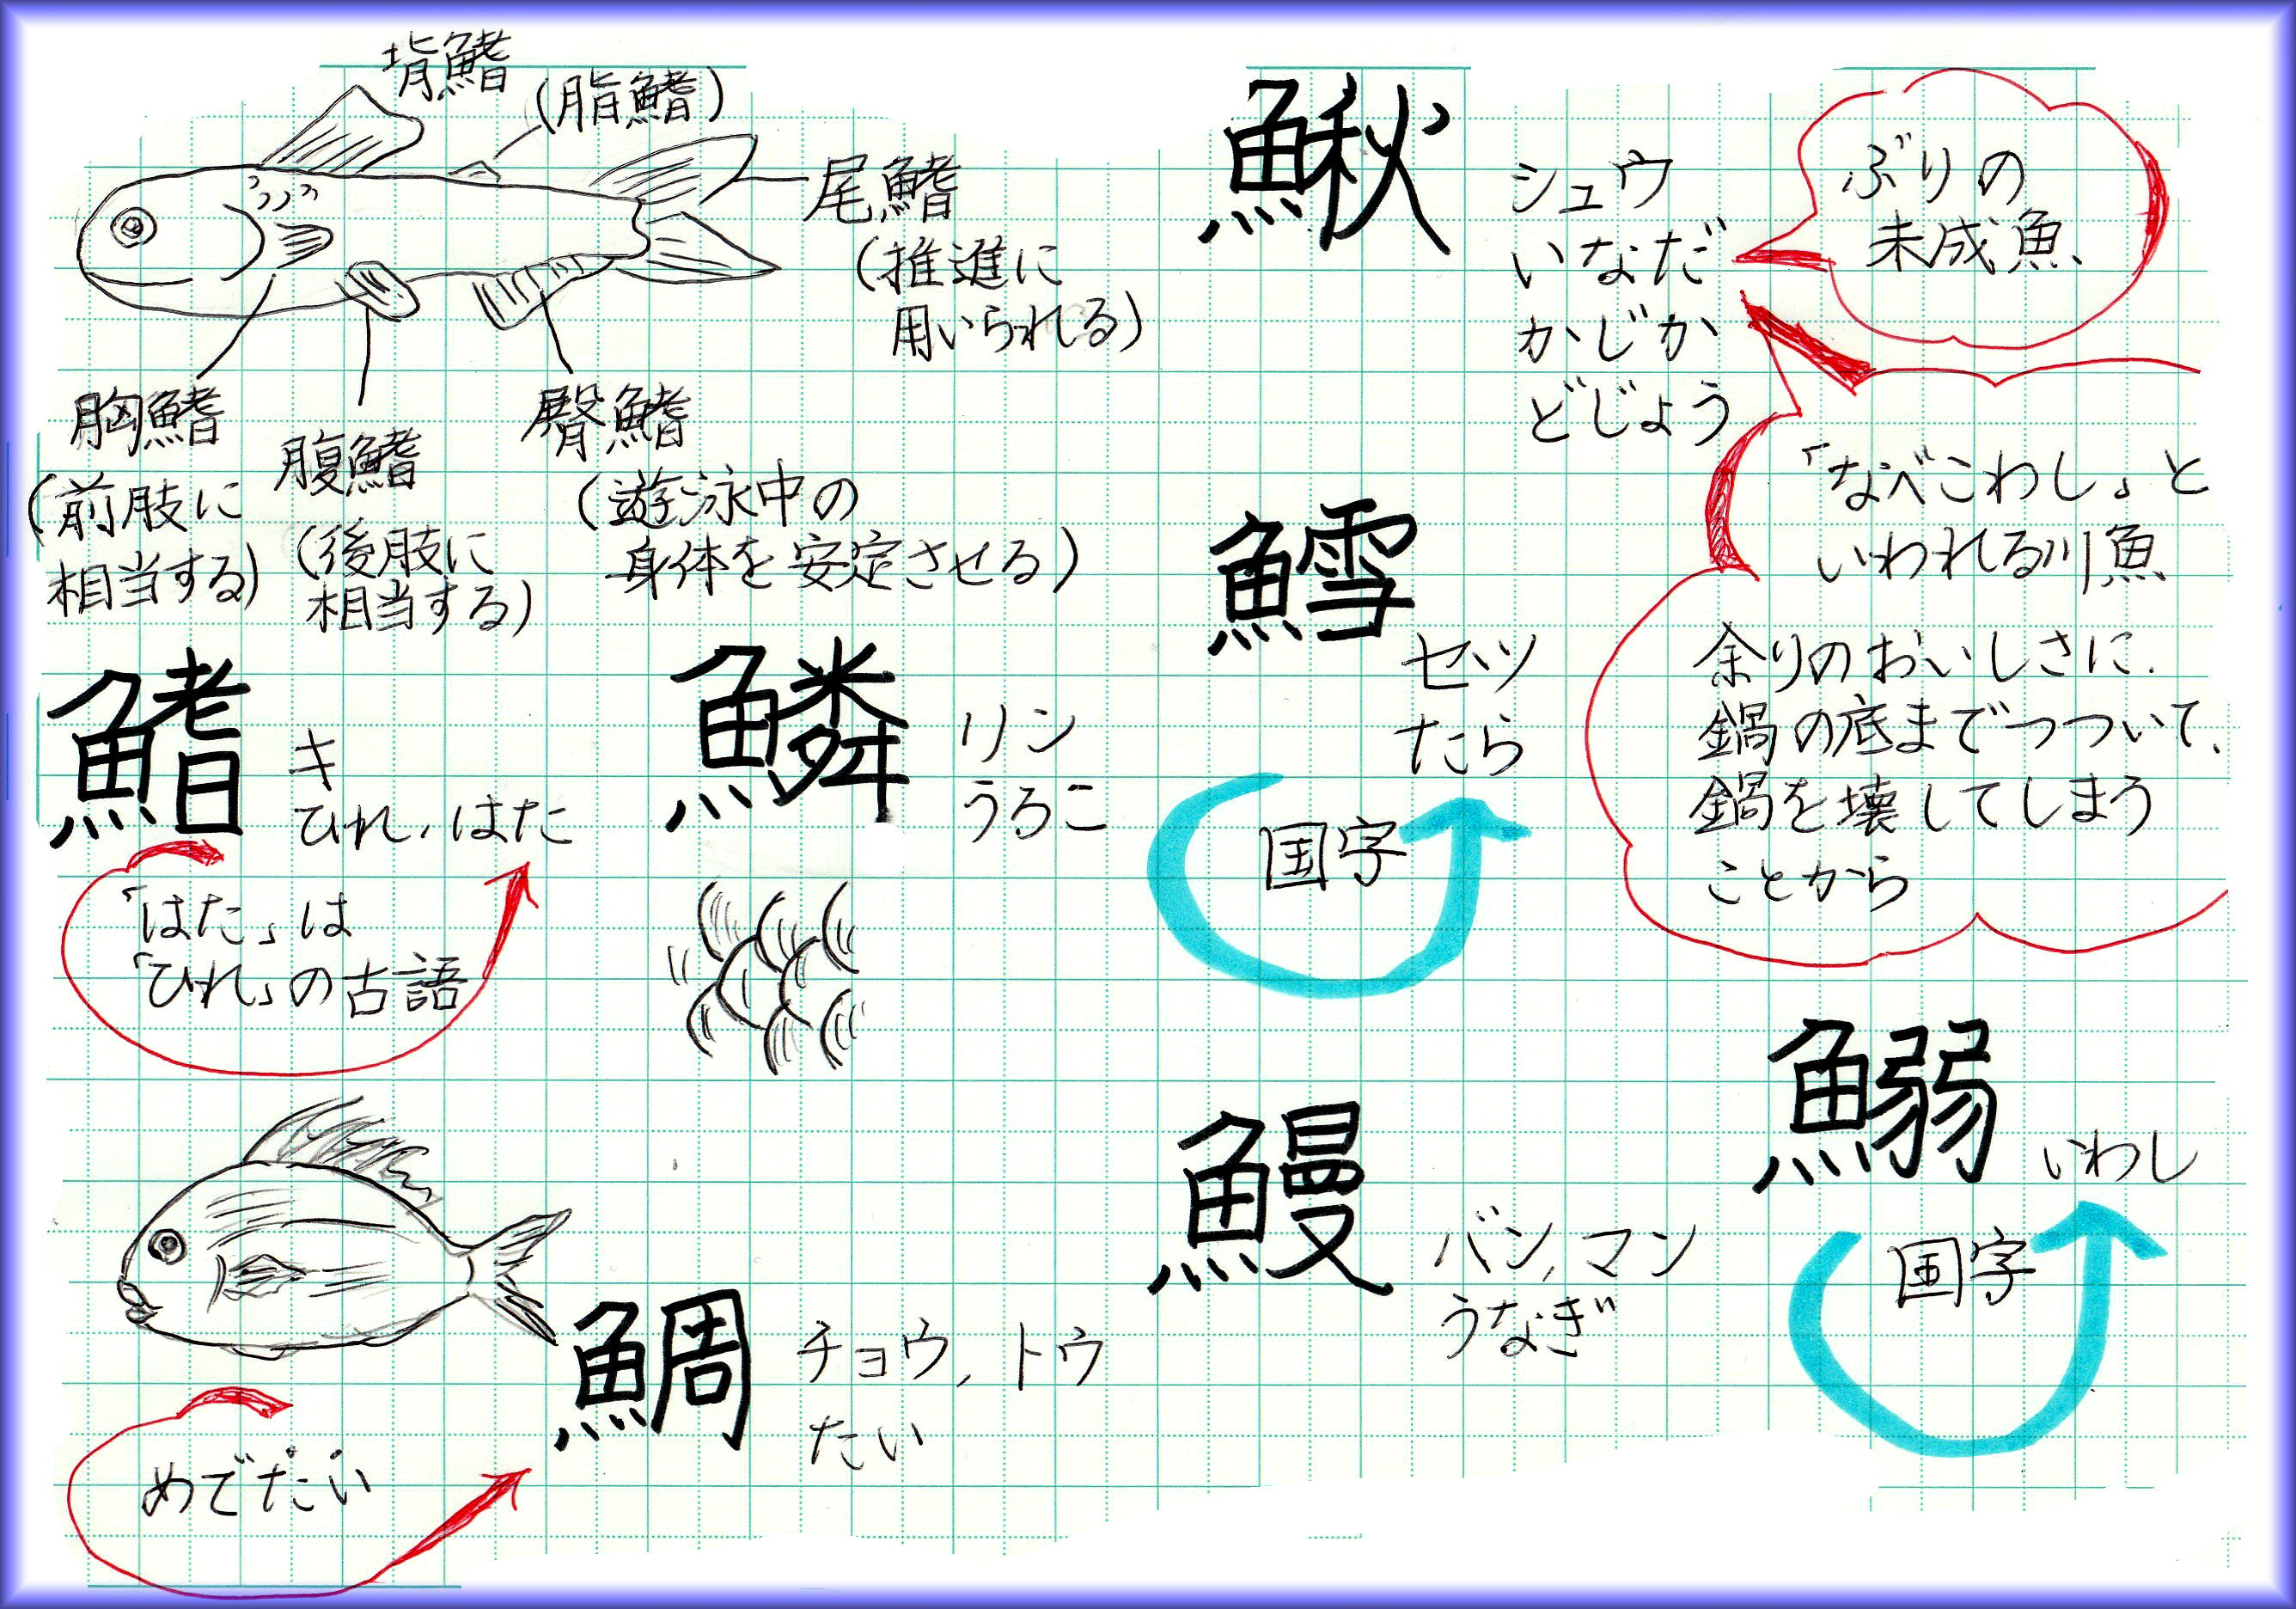 背鰭
(脂鰭)
尾鰭
(推進に
用いられる)
胸鰭
(前肢に
相当する)
腹鰭
(後肢に
相当する)
臀鰭
(遊泳中の
身体を安定させる)
鰭
キ
ひれ,はた
「はた」は
「ひれ」の古語
鱗
リン
うろこ
鯛
チョウ,トウ
たい
めでたい
鰍
シュウ
いなだ
かじか
どじょう
ぶりの
未成魚
「なべこわし」と
いわれる川魚
余りのおいしさに、
鍋の底までつついて、
鍋を壊してしまう
ことから
鱈
セツ
たら
国字
鰻
バン,マン
うなぎ
鰯
いわし
国字